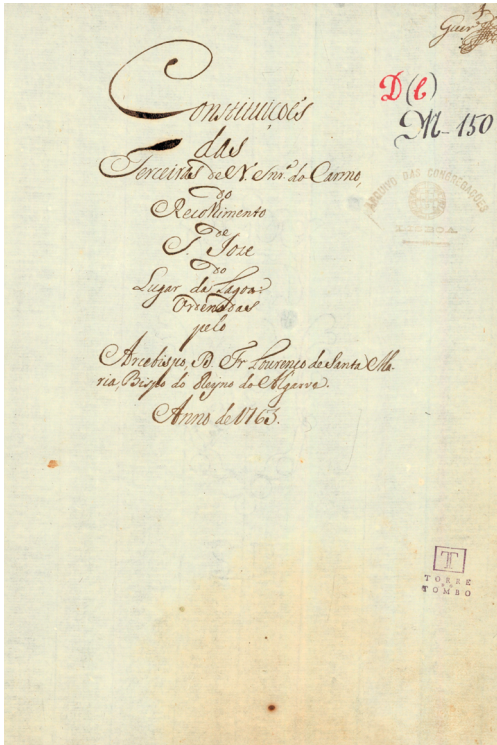 D(b)
M-150
ARQUIVO DAS CONGREGAÇÕES
LISBOA
Constituiçoẽs
das
Terceiras de N. Snr.ª do Carmo,
do
Recolhimento
de
S. Joze
do
Lugar da Lagoa:
Ordenadas
pelo
Arcebispo, D. Fr Lourenço de Santa Ma-
ria, Bispo do Reyno do Algarve.
Anno de 1763.
TORRE
DO
TOMBO